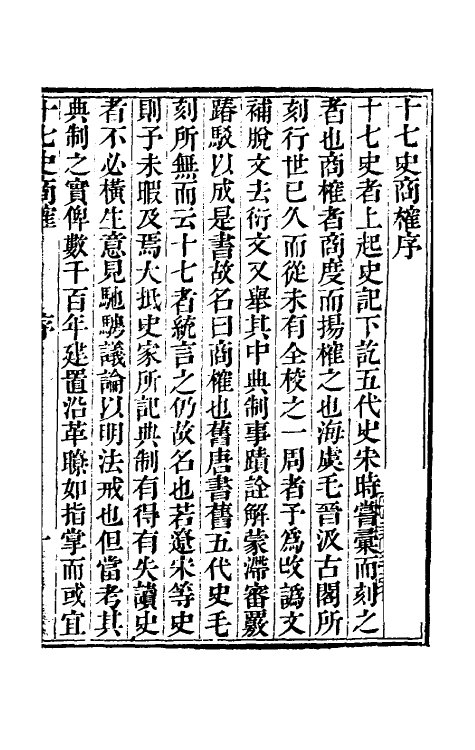 十七史商榷序
十七史者上起史記下訖五代史宋時嘗彙而刻之
者也商榷者商度而揚榷之也海虞毛晉汲古閣所
刻行世已久而從未有全校之一周者予爲改譌文
補脫文去衍文又舉其中典制事蹟詮解蒙滯審覈
踳駮以成是書故名曰商榷也舊唐書舊五代史毛
刻所無而云十七者統言之仍故名也若遼宋等史
則予未暇及焉大抵史家所記典制有得有失讀史
者不必橫生意見馳騁議論以明法戒也但當考其
典制之實俾數千百年建置沿革瞭如指掌而或宜
十七史商榷 序 一